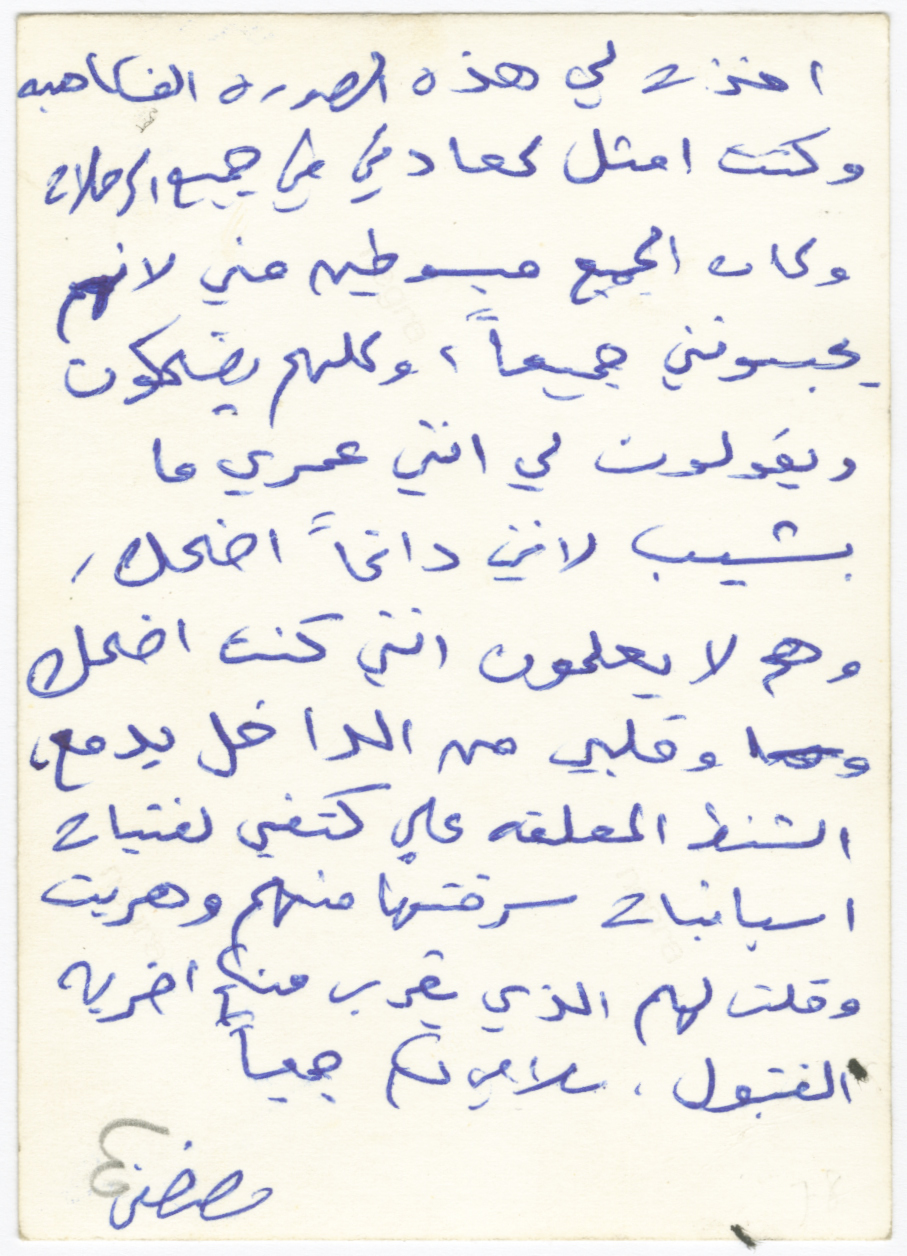 اخذت لي هذه الصوره الفكاهيه
وكنت امثل كعادتي في جميع الرحلات
وكان الجميع مبسوطين مني لانهم
يحبونني جميعاً، وكلهم يضحكون
ويقولون لي انني عمري ما
بشيب لانني دائماً اضحك،
وهم لا يعلمون انني كنت اضحك
وقلبي من الداخل يدمع،
الشنط المعلقه علي كتفي لفتيات
اسبانيات سرقتها منهم وهربت
وقلت لهم الذي يقرب منكم اضربه
الفتبول. سلامي لكم جميعاً